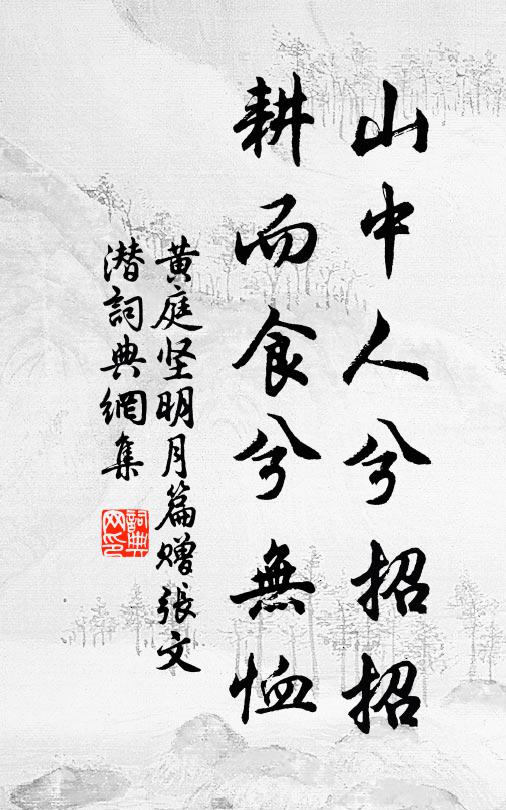 山中人兮招招
耕而食兮無恤
黃庭坚明月篇赠張文
潜詞典網集
詞典
网印